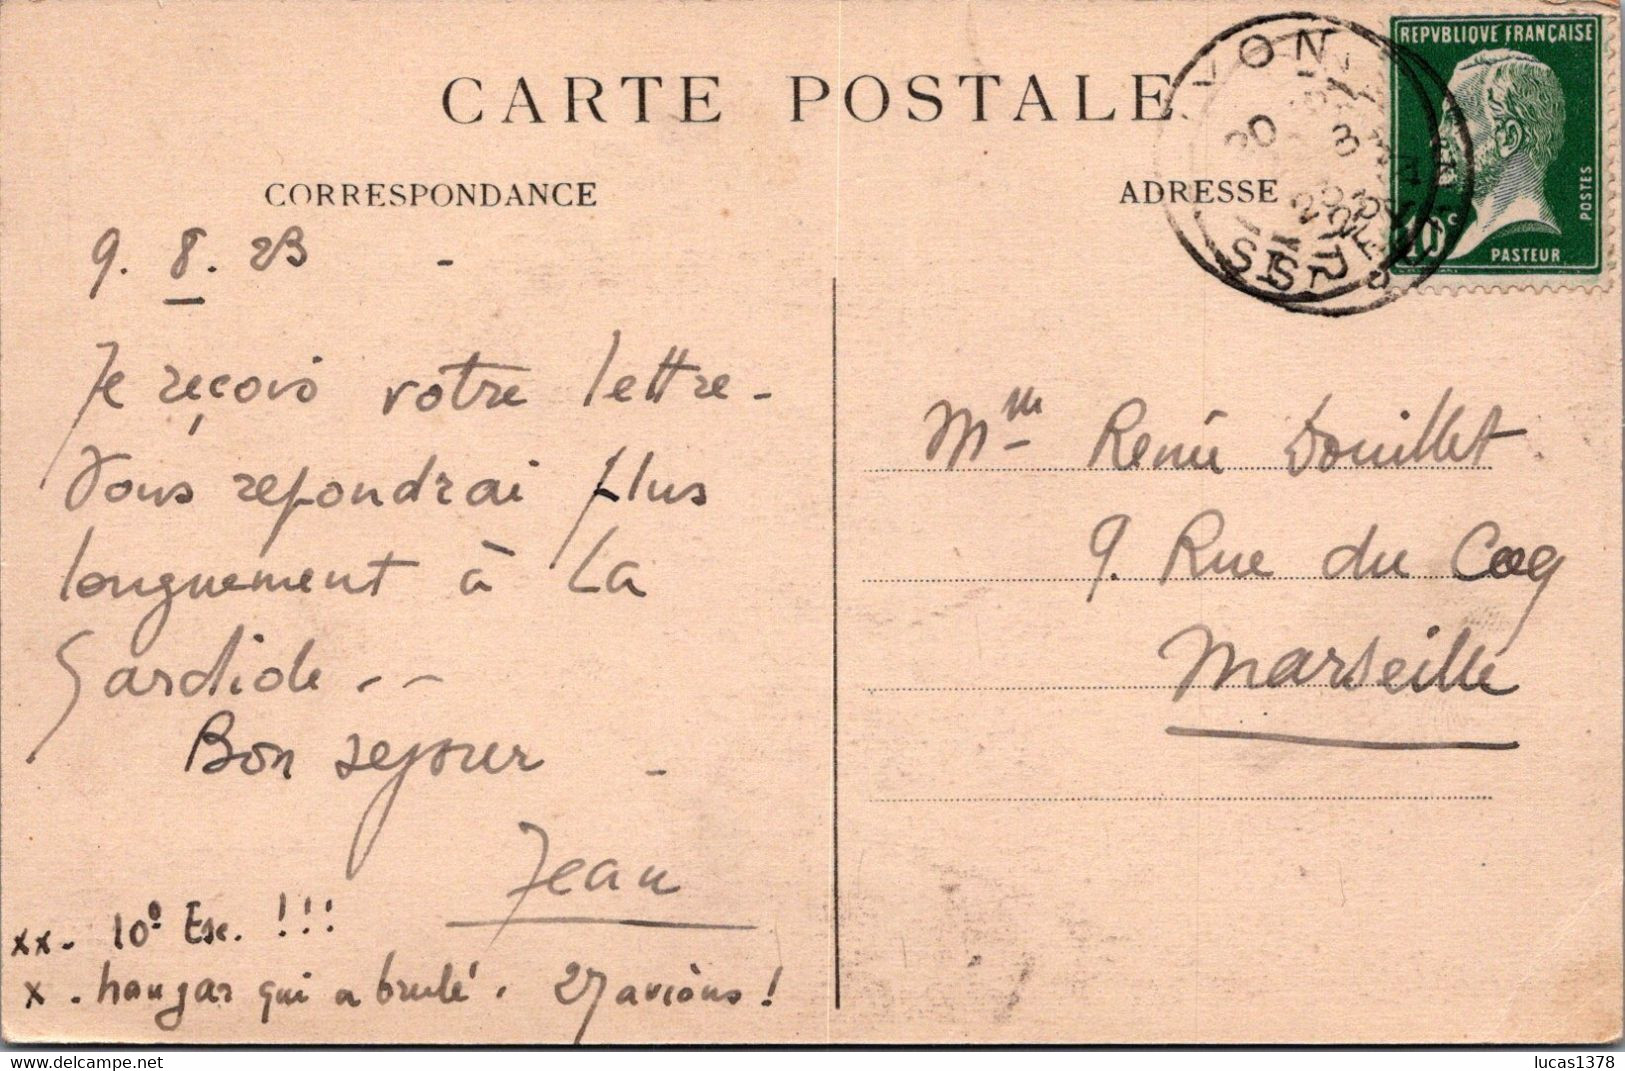 CARTE POSTALE
CORRESPONDANCE
9. 8. 23 -
Je reçois votre lettre -
Vous repondrai plus
longuement à La
Gardiole - -
Bon sejour -
Jean
xx - 10e Esc. !!!
x - hangar qui a brulé. 27 avions !
ADRESSE
REPVBLIQVE FRANÇAISE
10c
POSTES
PASTEUR
Mlle Renée Douillet
9. Rue du Coq
Marseille
lucas1378